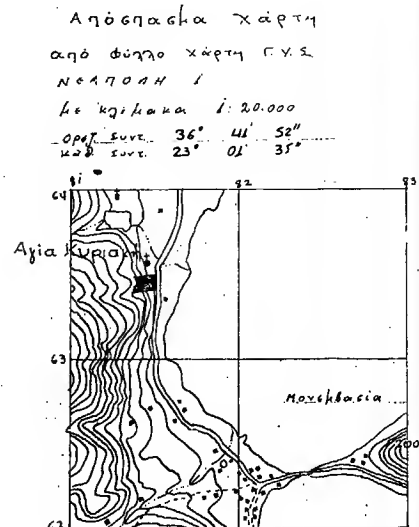 Απόσπασμα χάρτη
από φύλλο χάρτη Γ.Υ.Σ
ΝΕΑΠΟΛΗ 1
με κλίμακα 1:20.000
οριζ. συντ. 36° 41' 52"
καθ. συντ. 23° 01' 35"
81 82 83
64
Αγία Κυριακή
63
Μονεμβασία
200
62